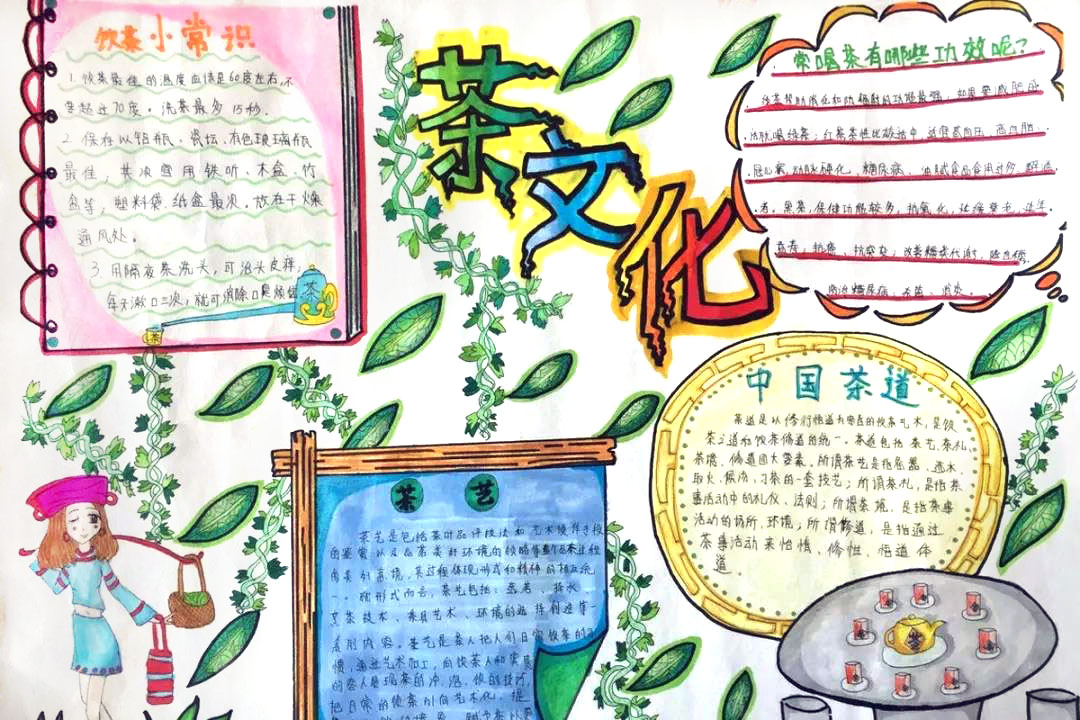 饮茶小常识
1.饮茶最佳的温度应该是60度左右,不
要超过70度。洗茶最多15秒.
2.保存以铝瓶、瓷坛、有色玻璃瓶
最佳,其次宜用铁听、木盒、竹
盒等,塑料袋、纸盒最次。放在干燥
通风处。
3.用隔夜茶洗头,可治头皮痒;
每天漱口三次,就可消除口臭烦恼
茶
茶
茶文化
常喝茶有哪些功效呢?
冠心病,动脉硬化,糖尿病、油腻食品食用过多
者。黑茶,保健功能较多,抗氧化,延缓衰老
抗癌、抗突变;改善糖类代谢,降血糖,
防治糖尿病、杀菌、消炎。
中国茶道
茶道是以修行悟道为宗旨的饮茶艺术,是饮
茶之道和饮茶修道的统一。茶道包括茶艺、茶礼、
茶境、修道四大要素。所谓茶艺是指备器、选水、
取火、候汤、习茶的一套技艺;所谓茶礼,是指茶
事活动中的礼仪、法则;所谓茶境,是指茶事
活动的场所、环境;所谓修道,是指通过
茶事活动来怡情、修性、悟道体
道。
茶艺
茶艺是包括茶叶品评技法和艺术操作手段
的鉴赏以及品茗美好环境的领略等品茶过程
的美好意境,其过程体现形式和精神的相互统
一。就形式而言,茶艺包括:选茗、择水、
烹茶技术、茶具艺术、环境的选择创造等一
系列内容。茶艺是
惯,通过艺术加工,向饮茶人和宾客
的客人展现茶的冲、泡、饮的技巧,
把日常的饮茶引向艺术化,提
茶